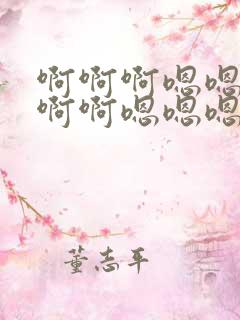 啊啊啊嗯嗯
啊啊嗯嗯嗯
董志平